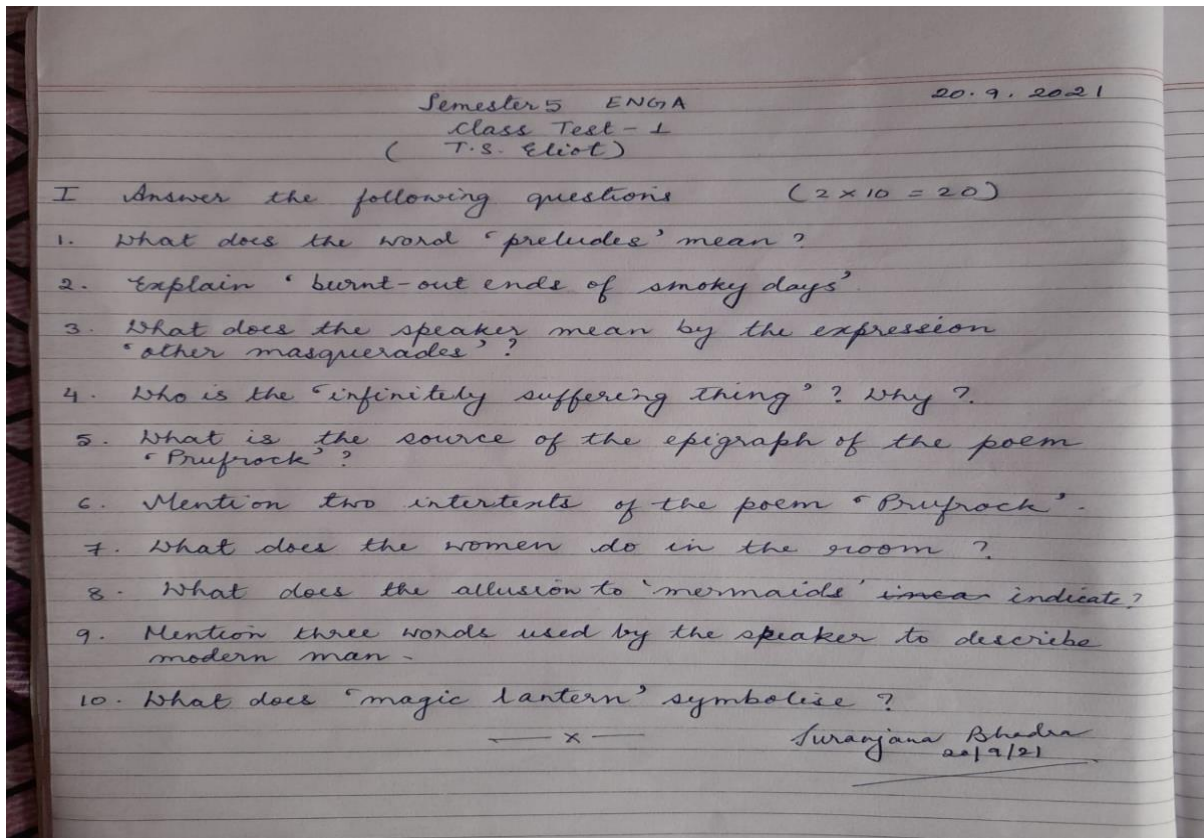 20.9.2021
Semester 5 ENGA
Class Test - 1
( T.S. Eliot )
I Answer the following questions (2 × 10 = 20)
1. What does the word 'preludes' mean ?
2. Explain 'burnt-out ends of smoky days'.
3. What does the speaker mean by the expression
'other masquerades' ?
4. Who is the 'infinitely suffering thing' ? Why ?
5. What is the source of the epigraph of the poem
'Prufrock' ?
6. Mention two intertexts of the poem 'Prufrock'.
7. What does the women do in the room ?
8. What does the allusion to 'mermaids' indicate ?
9. Mention three words used by the speaker to describe
modern man.
10. What does 'magic lantern' symbolise ?
— x —
Suranjana Bhadra
20/9/21